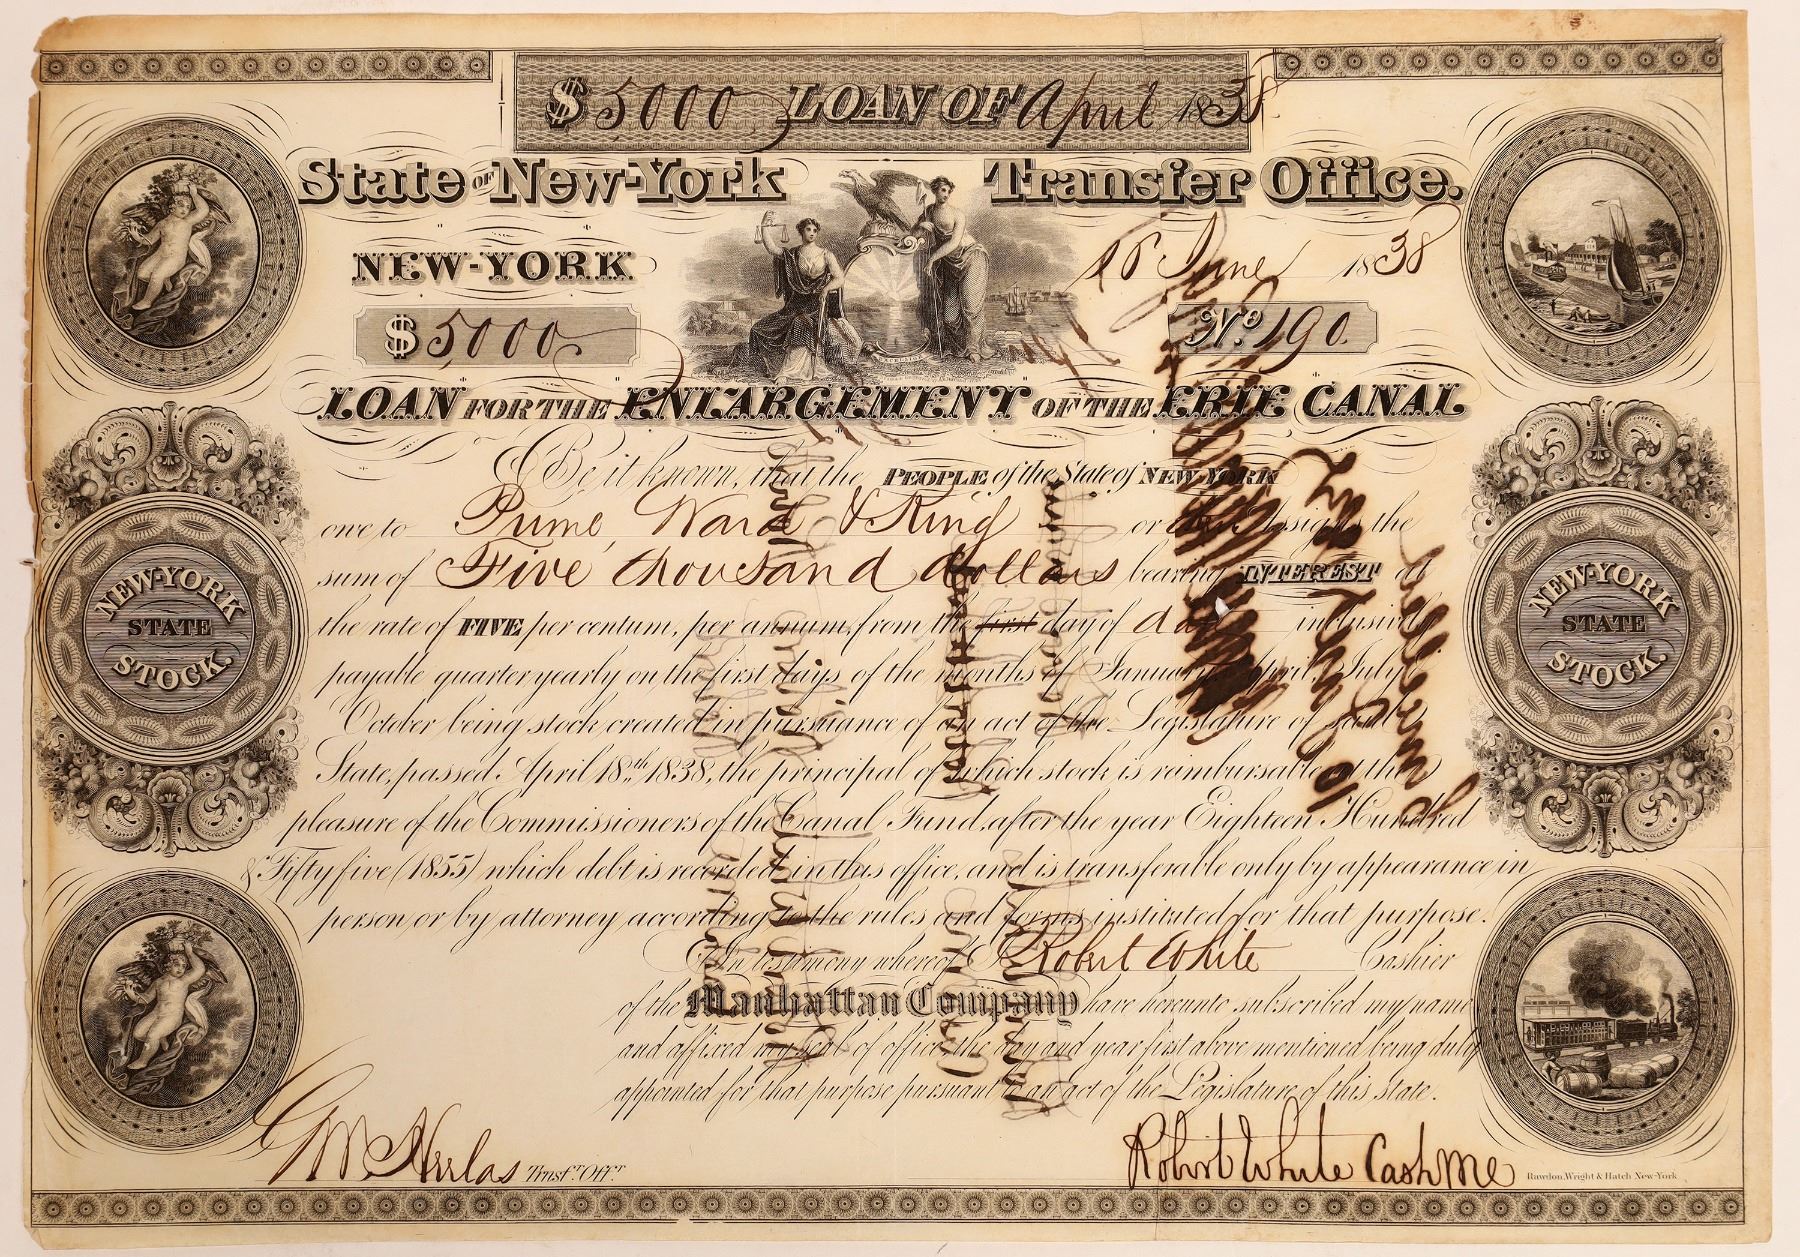 $ 5000 LOAN OF April 1838
State OF New-York Transfer Office.
NEW-YORK
18 June 1838
$ 5000
No. 190
LOAN FOR THE ENLARGEMENT OF THE ERIE CANAL
Be it known, that the PEOPLE of the State of NEW-YORK
owe to Prime, Ward & King or Assigns the
sum of Five thousand dollars bearing INTEREST at
the rate of FIVE per centum, per annum, from the first day of date inclusively
payable quarter yearly on the first days of the months of January, April, July,
October being stock created in pursuance of an act of the Legislature of said
State, passed April 18th 1838, the principal of which stock is raimbursable at the
pleasure of the Commissioners of the Canal Fund, after the year Eighteen Hundred
& Fifty five (1855) which debt is recorded in this office, and is transferable only by appearance in
person or by attorney according to the rules and forms instituted for that purpose.
In testimony whereof I Robert White Cashier
of the Manhattan Company have hereunto subscribed my name
and affixed my Seal of office, the day and year first above mentioned being duly
appointed for that purpose pursuant to an act of the Legislature of this State.
Trnsfr. Offr.
Robert White Cash
Rawdon, Wright & Hatch New-York
NEW-YORK
STATE
STOCK.
NEW-YORK
STATE
STOCK.
EXCELSIOR